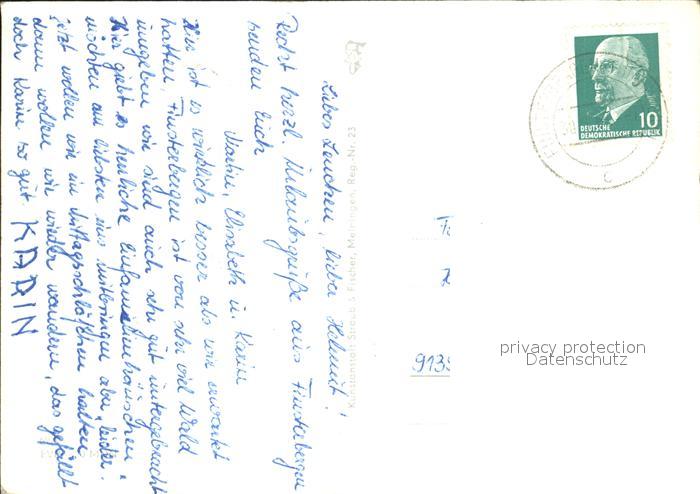 Liebes Lenchen, lieber Helmut!
Recht herzl. Urlaubsgrüße aus Finsterbergen
senden Euch
Martin, Elisabeth u. Karin
Hier ist es wirklich besser als wir erwartet
hatten, Finsterbergen ist von sehr viel Wald
umgeben wir sind auch sehr gut untergebracht
Hier giebt es herrliche Einfamilienhäuschen,
möchten am liebsten eins mitbringen aber, leider.
Jetzt wollen wir ein Mittagsschläfchen halten,
dann wollen wir wieder wandern, das gefällt
doch Karin so gut. KARIN
Kunstanstalt Straub & Fischer, Meiningen, Reg.-Nr. 23
10
DEUTSCHE
DEMOKRATISCHE REPUBLIK
c
privacy protection
Datenschutz